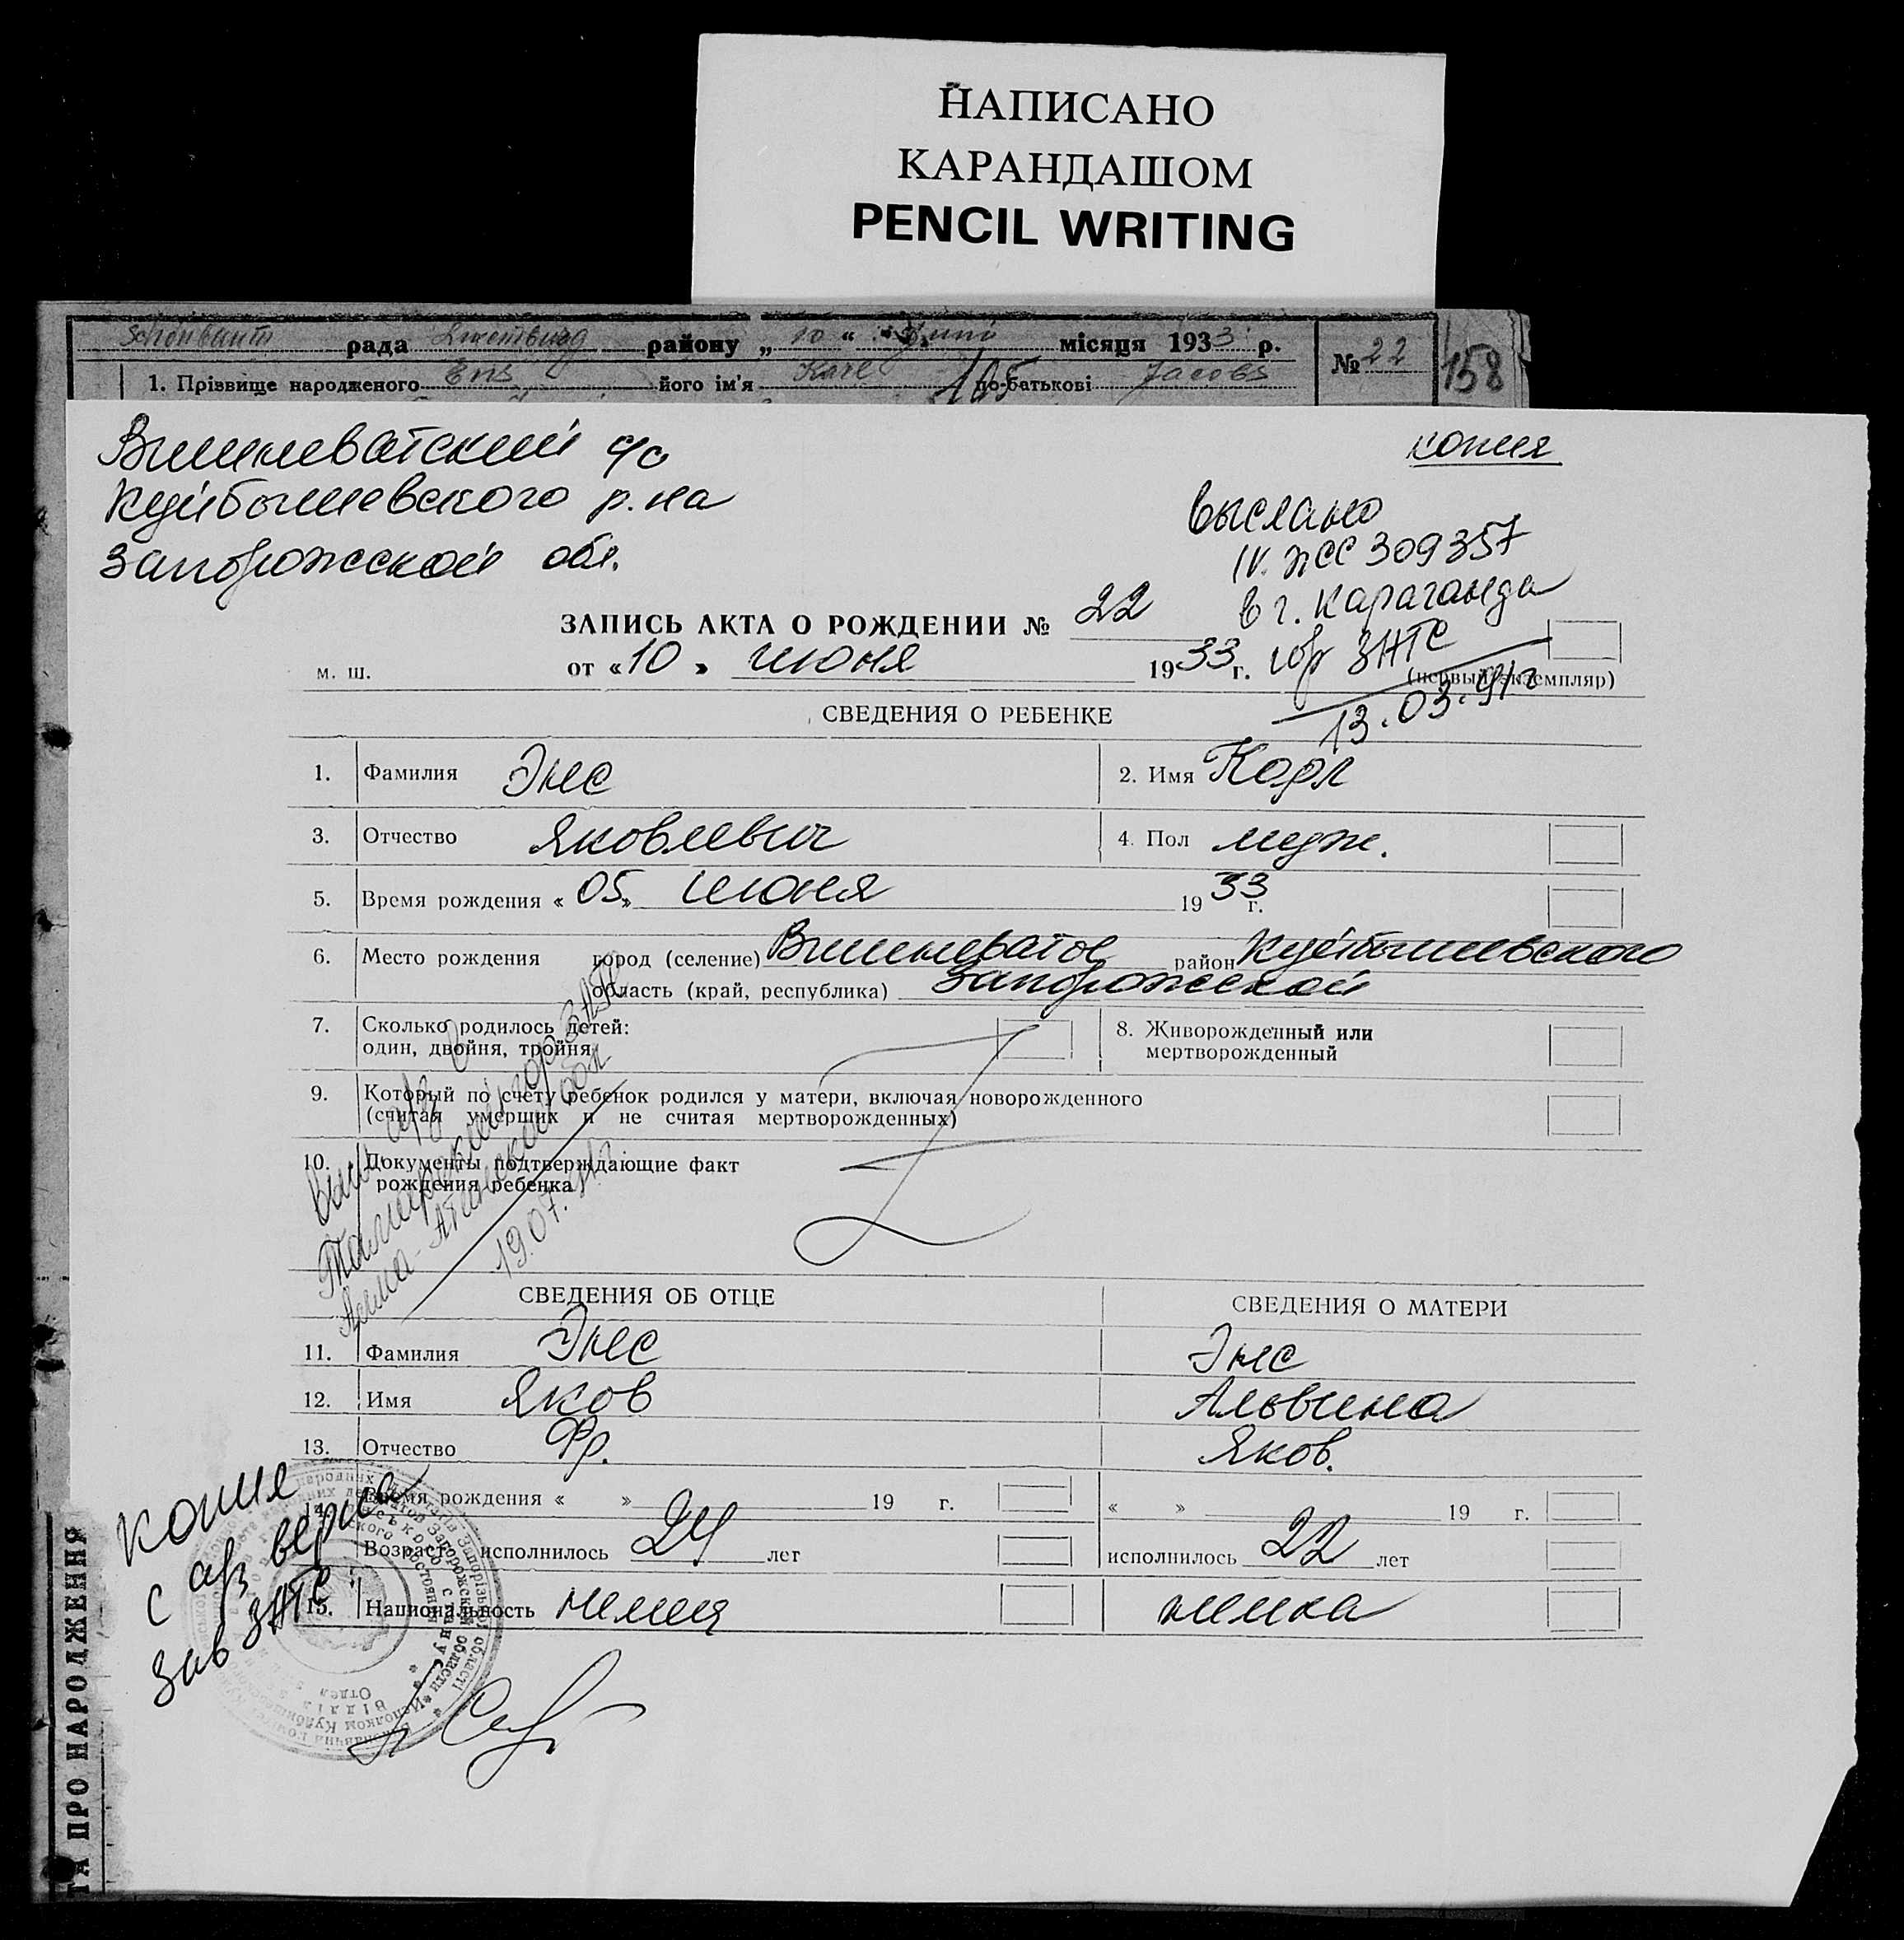 НАПИСАНО
КАРАНДАШОМ
PENCIL WRITING
рада району „ 10 “ Juni місяця 1933 р. № 22 158
1. Прізвище народженого Ens його ім'я Karl по-батькові Jacobs
105
копия
Вишневатский с/с
Куйбышевского р.на
Запорожской обл.
выслано
IV. ЖС 309357
в г. Караганда
гор ЗАГС
13.03.91г
ЗАПИСЬ АКТА О РОЖДЕНИИ № 22
м. ш. от «10» июня 1933 г.
(первый экземпляр)
СВЕДЕНИЯ О РЕБЕНКЕ
1. Фамилия Энс 2. Имя Карл
3. Отчество Яковлевич 4. Пол муж.
5. Время рождения «05» июня 1933 г.
6. Место рождения город (селение) Вишневатое район Куйбышевского
область (край, республика) Запорожской
7. Сколько родилось детей: 8. Живорожденный или
один, двойня, тройня мертворожденный
9. Который по счету ребенок родился у матери, включая новорожденного
(считая умерших и не считая мертворожденных)
10. Документы подтверждающие факт
рождения ребенка
гор ЗАГС
Алма-Атинской обл
19.07.91г.
СВЕДЕНИЯ ОБ ОТЦЕ СВЕДЕНИЯ О МАТЕРИ
11. Фамилия Энс Энс
12. Имя Яков Альвина
13. Отчество Фр. Яков.
14. Время рождения « » 19 г. « » 19 г.
Возраст исполнилось 24 лет исполнилось 22 лет
15. Национальность немец немка
копия
с а/з верна
Зав ЗАГС
ТА ПРО НАРОДЖЕННЯ